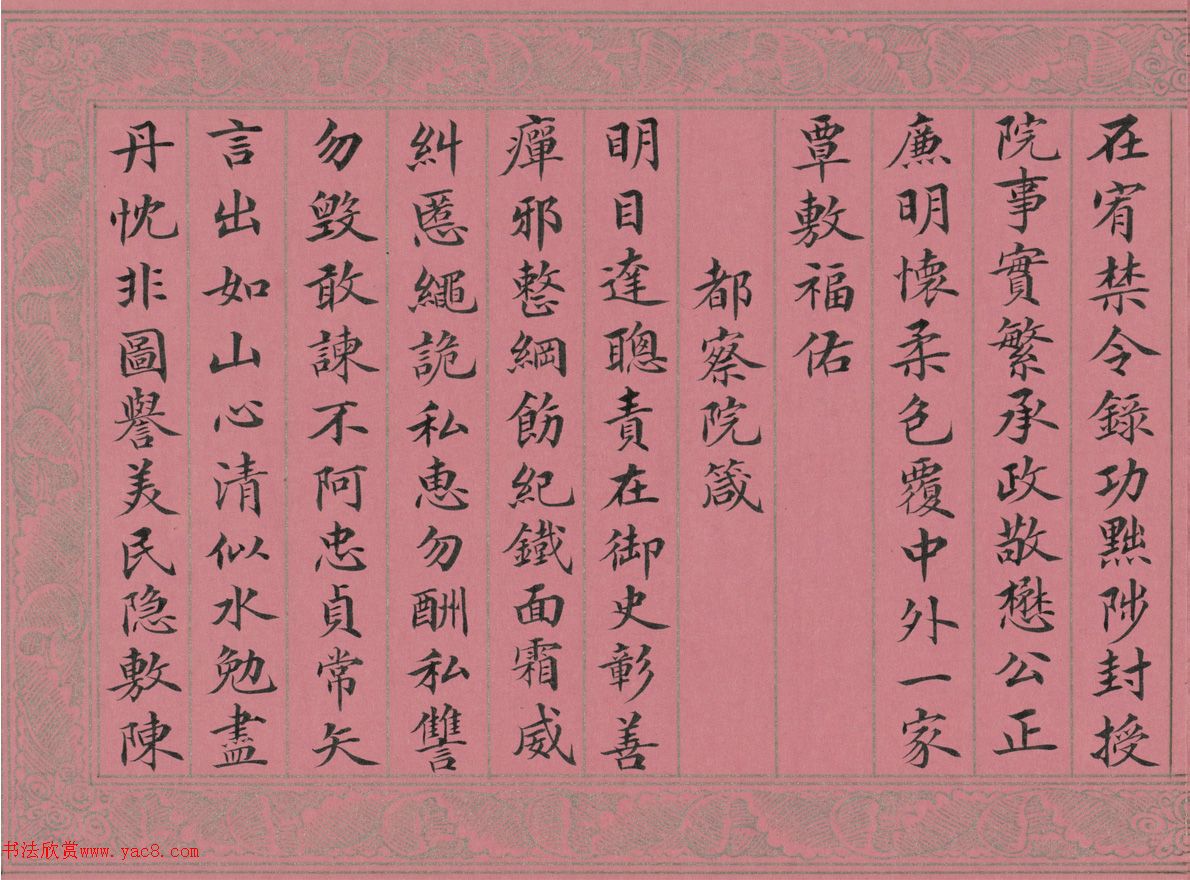 在宥禁令錄功黜陟封授
院事實繁承政敬懋公正
廉明懷柔色覆中外一家
覃敷福佑
都察院箴
明目達聰責在御史彰善
癉邪整綱飭紀鐵面霜威
糾慝繩詭私惠勿酬私讐
勿毀敢諫不阿忠貞常矢
言出如山心清似水勉盡
丹忱非圖譽美民隐敷陳
书法欣赏www.yac8.com